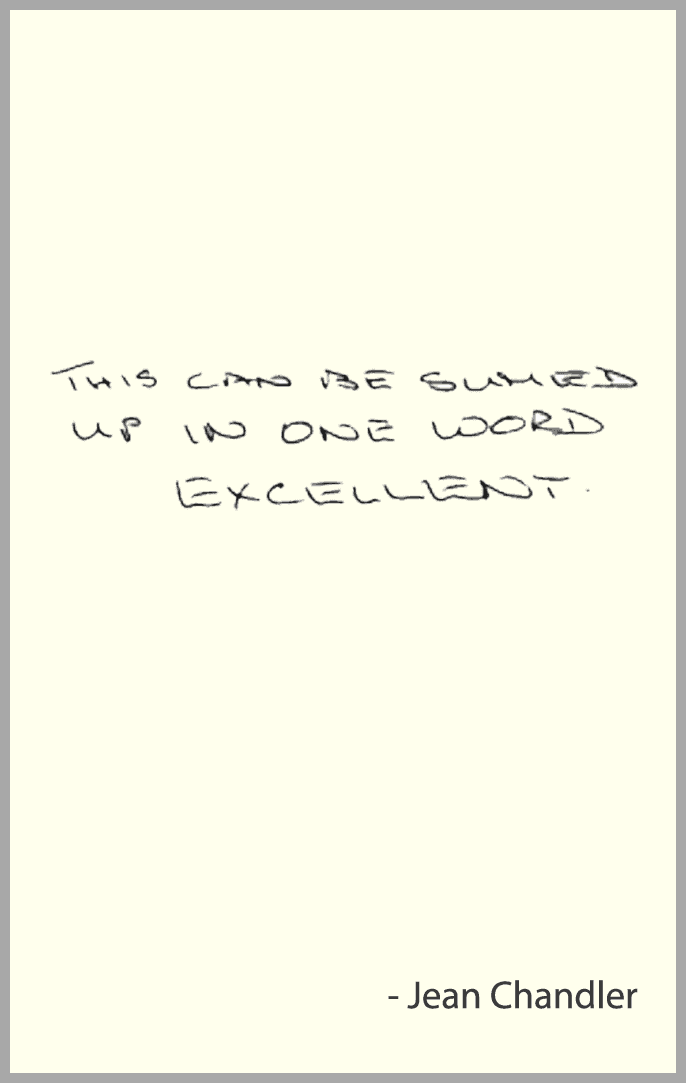 THIS CAN BE SUMED
UP IN ONE WORD
EXCELLENT.
- Jean Chandler